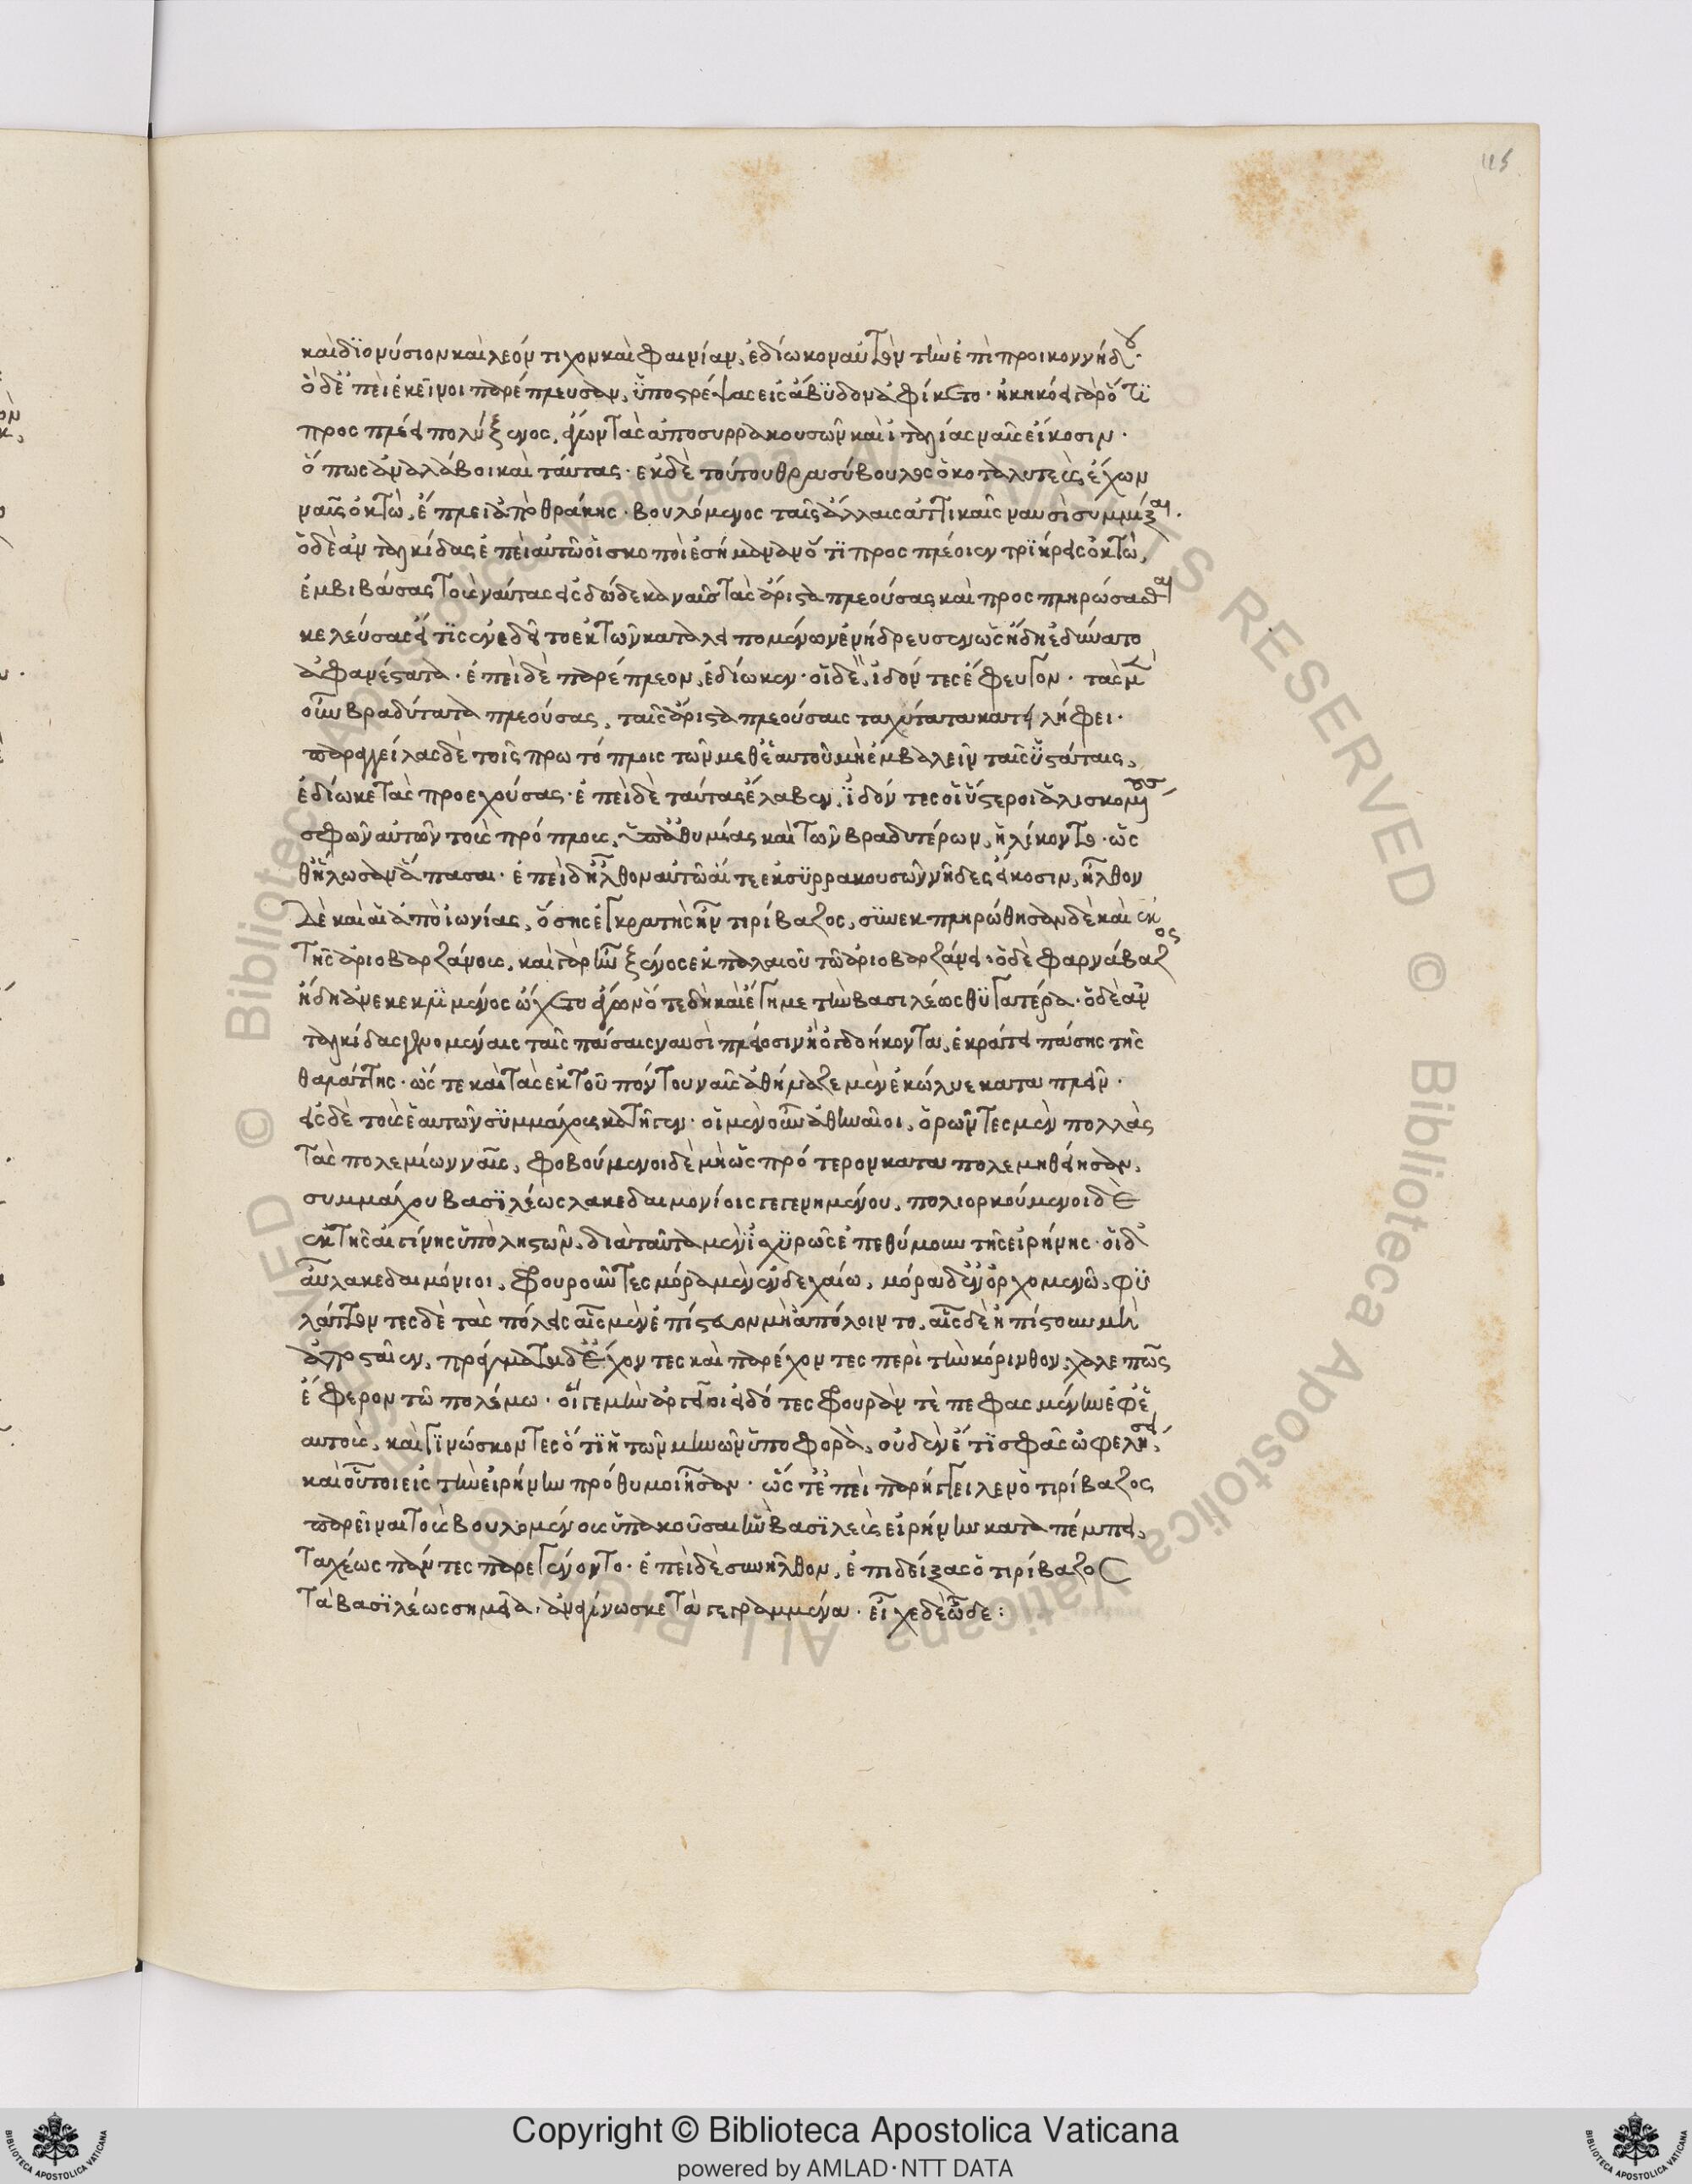 115
καὶ διονύσιον καὶ λεόντιχον καὶ φαινίαν, ἐδίωκον αὐτὸν τὴν ἐπὶ προικοννήσου·
ὁ δ' ἐπεὶ ἐκεῖνοι παρέπλευσαν, ὑποστρέψας εἰς ἄβυδον ἀφίκετο· ἠκηκόει γὰρ ὅτι
προσπλέει πολύξενος, ἄγων τὰς ἀπὸ συρρακουσῶν καὶ ἰταλίας ναῦς εἴκοσιν·
ὅπως ἀναλάβοι καὶ ταύτας· ἐκ δὲ τούτου θρασύβουλος ὁ κολυτεὺς, ἔχων
ναῦς ὀκτὼ, ἔπλει ἀπὸ θράκης· βουλόμενος ταῖς ἄλλαις ἀττικαῖς ναυσὶ συμμίξαι·
ὁ δὲ ἀνταλκίδας ἐπεὶ αὐτῷ οἱ σκοποὶ ἐσήμαναν ὅτι προσπλέοιεν τριήρεις ὀκτὼ,
ἐμβιβάσας τοὺς ναύτας εἰς δώδεκα ναῦς τὰς ἄριστα πλεούσας καὶ προσπληρώσασθαι
κελεύσας εἴ τις ἐνεδεῖτο ἐκ τῶν καταλειπομένων ἐνήδρευσεν ὡς ἤδη ἐδύνατο
ἀφανέστατα· ἐπεὶ δὲ παρέπλεον, ἐδίωκεν· οἱ δὲ ἰδόντες ἔφευγον· τὰς μὲν
οὖν βραδύτατα πλεούσας, ταῖς ἄριστα πλεούσαις ταχύτατα κατειλήφει·
παραγγείλας δὲ τοῖς πρωτόπλοις τῶν μεθ' ἑαυτοῦ μὴ ἐμβαλεῖν ταῖς ὑστάταις,
ἐδίωκε τὰς προεχούσας· ἐπεὶ δὲ ταύτας ἔλαβεν, ἰδόντες οἱ ὕστεροι ἁλισκομένους
σφῶν αὐτῶν τοὺς πρόπλους, ὑπὸ ἀθυμίας καὶ τῶν βραδυτέρων, ἡλίσκοντο· ὡς
θ' ἥλωσαν ἅπασαι· ἐπεὶ δ' ἦλθον αὐτῷ αἵ τε ἐκ συρρακουσῶν νῆες εἴκοσιν, ἦλθον
δὲ καὶ αἱ ἀπὸ ἰωνίας, ὅσης ἐγκρατὴς ἦν τιρίβαζος, συνεκπληρώθησαν δὲ καὶ ἐκ
τῆς ἀριοβαρζάνους, καὶ γὰρ ἦν ξένος ἐκ παλαιοῦ τῷ ἀριοβαρζάνει· ὁ δὲ φαρνάβαζος
ἤδη ἀνακεκλημένος ᾤχετο ἄνω ὅτε δὴ καὶ ἔγημε τὴν βασιλέως θυγατέρα· ὁ δὲ ἀν
ταλκίδας γενομέναις ταῖς πάσαις ναυσὶ πλείοσιν ἢ ὀγδοήκοντα, ἐκράτει πάσης τῆς
θαλάττης· ὥστε καὶ τὰς ἐκ τοῦ πόντου ναῦς ἀθήναζε μὲν ἐκώλυε καταπλεῖν·
εἰς δὲ τοὺς ἑαυτῶν συμμάχους κατῆγεν· οἱ μὲν οὖν ἀθηναῖοι, ὁρῶντες μὲν πολλὰς
τὰς πολεμίων ναῦς, φοβούμενοι δὲ μὴ ὡς πρότερον καταπολεμηθείησαν,
συμμάχου βασιλέως λακεδαιμονίοις γεγενημένου, πολιορκούμενοι δὲ
ἐκ τῆς αἰγίνης ὑπὸ ληστῶν, διὰ ταῦτα μὲν ἰσχυρῶς ἐπεθύμουν τῆς εἰρήνης· οἱ δ'
αὖ λακεδαιμόνιοι, φρουροῦντες μόρᾳ μὲν ἐν λεχαίῳ, μόρᾳ δ' ἐν ὀρχομενῷ, φυ
λάττοντες δὲ τὰς πόλεις αἷς μὲν ἐπίστευον μὴ ἀπόλοιντο, αἷς δὲ ἠπίστουν μὴ
ἀποσταῖεν, πράγματα δ' ἔχοντες καὶ παρέχοντες περὶ τὴν κόρινθον, χαλεπῶς
ἔφερον τῷ πολέμῳ· οἵ γε μὴν ἀργεῖοι εἰδότες φρουράν τε πεφασμένην ἐφ' ἑ
αυτοὺς, καὶ γινώσκοντες ὅτι ἡ τῶν μηνῶν ὑποφορὰ, οὐδὲν ἔτι σφᾶς ὠφελήσει,
καὶ οὗτοι εἰς τὴν εἰρήνην πρόθυμοι ἦσαν· ὥστ' ἐπεὶ παρήγγειλεν ὁ τιρίβαζος
παρεῖναι τοὺς βουλομένους ὑπακοῦσαι ἣν βασιλεὺς εἰρήνην καταπέμπει,
ταχέως πάντες παρεγένοντο· ἐπεὶ δὲ συνῆλθον, ἐπιδείξας ὁ τιρίβαζος
τὰ βασιλέως σημεῖα, ἀνεγίνωσκε τὰ γεγραμμένα· εἶχε δὲ ὧδε:
© Biblioteca Apostolica Vaticana ALL RIGHTS RESERVED
© Biblioteca Apostolica Vaticana ALL RIGHTS RESERVED
Copyright © Biblioteca Apostolica Vaticana
powered by AMLAD·NTT DATA
BIBLIOTECA APOSTOLICA VATICANA
BIBLIOTECA APOSTOLICA VATICANA